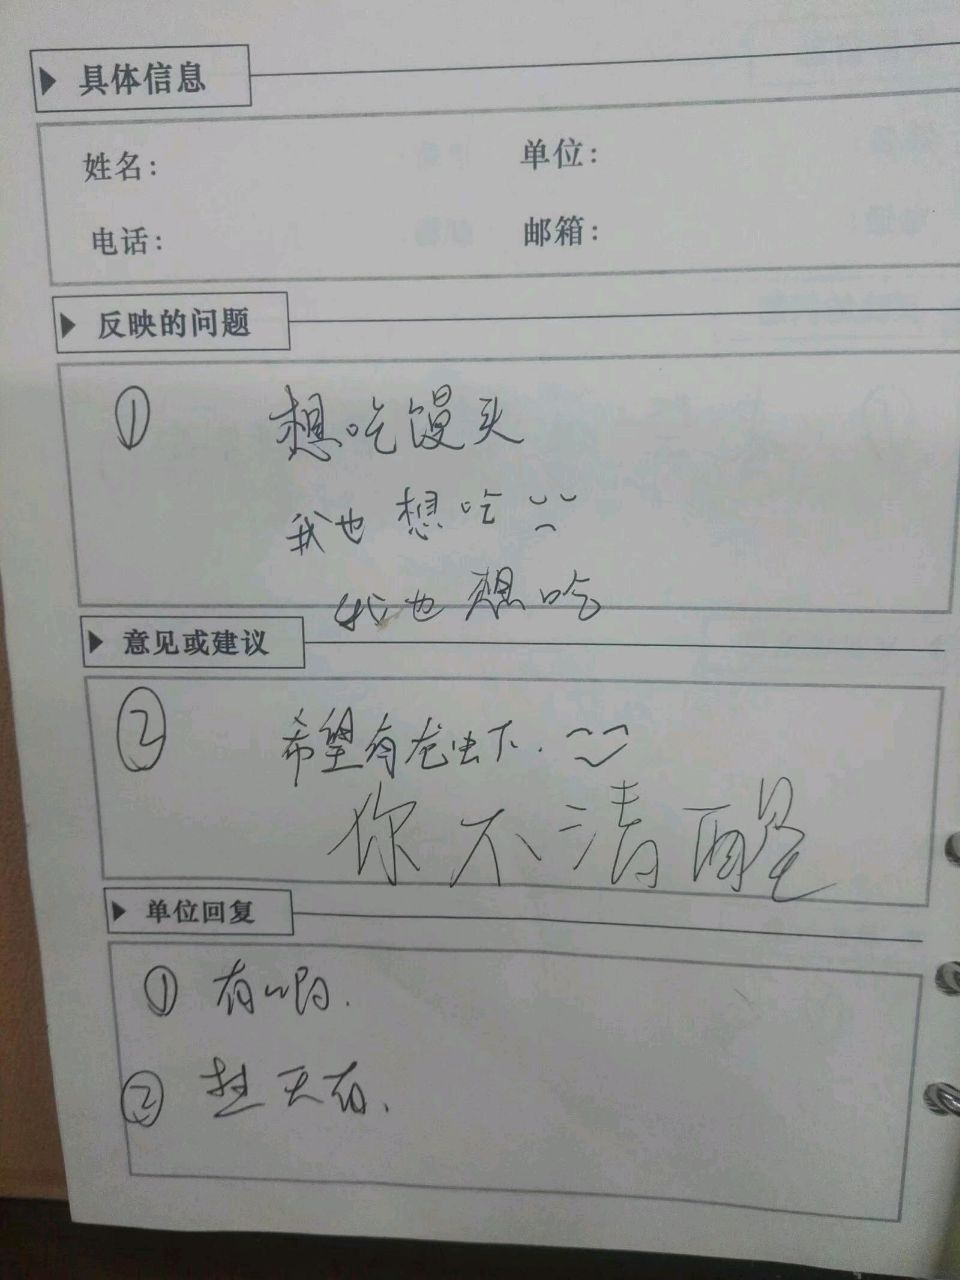 具体信息
姓名: 单位:
电话: 邮箱:
反映的问题
① 想吃馒头
我也想吃
我也想吃
意见或建议
② 希望有龙虫下.
你不清醒
单位回复
① 有啊.
② 天有.